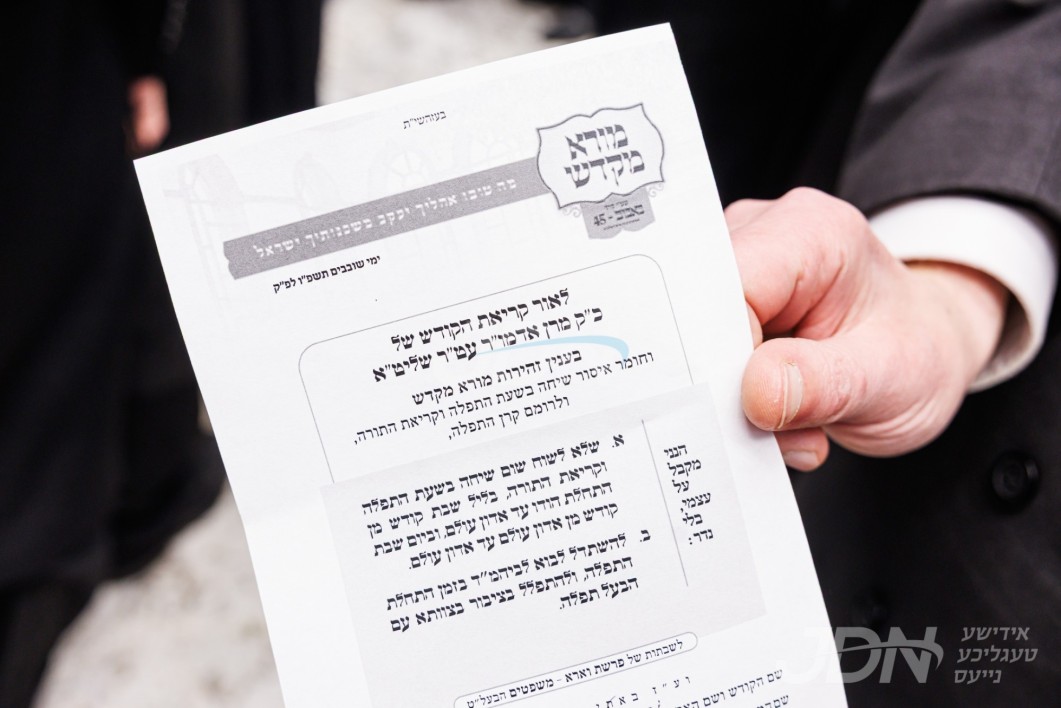 בעזהשי"ת
מורא
מקדש
מה טובו אהליך יעקב משכנותיך ישראל
45 -
ימי שובבים תשפ"ו לפ"ק
לאור קריאת הקודש של
כ"ק מרן אדמו"ר עט"ר שליט"א
בענין זהירות מורא מקדש
וחומר איסור שיחה בשעת התפלה וקריאת התורה,
ולרומם קרן התפלה,
הנני
מקבל
על
עצמי,
בלי
נדר:
א. שלא לשוח שום שיחה בשעת התפלה
וקריאת התורה, בליל שבת קודש מן
התחלת הודו עד אדון עולם, וביום שבת
קודש מן אדון עולם עד אדון עולם.
ב. להשתדל לבוא לביהמ"ד בזמן התחלת
התפלה, ולהתפלל בציבור בצוותא עם
הבעל תפלה.
לשבתות של פרשת וארא - משפטים הבעל"ט
שם הקודש ושם
JDN
אידישע
טעגליכע
נייעס